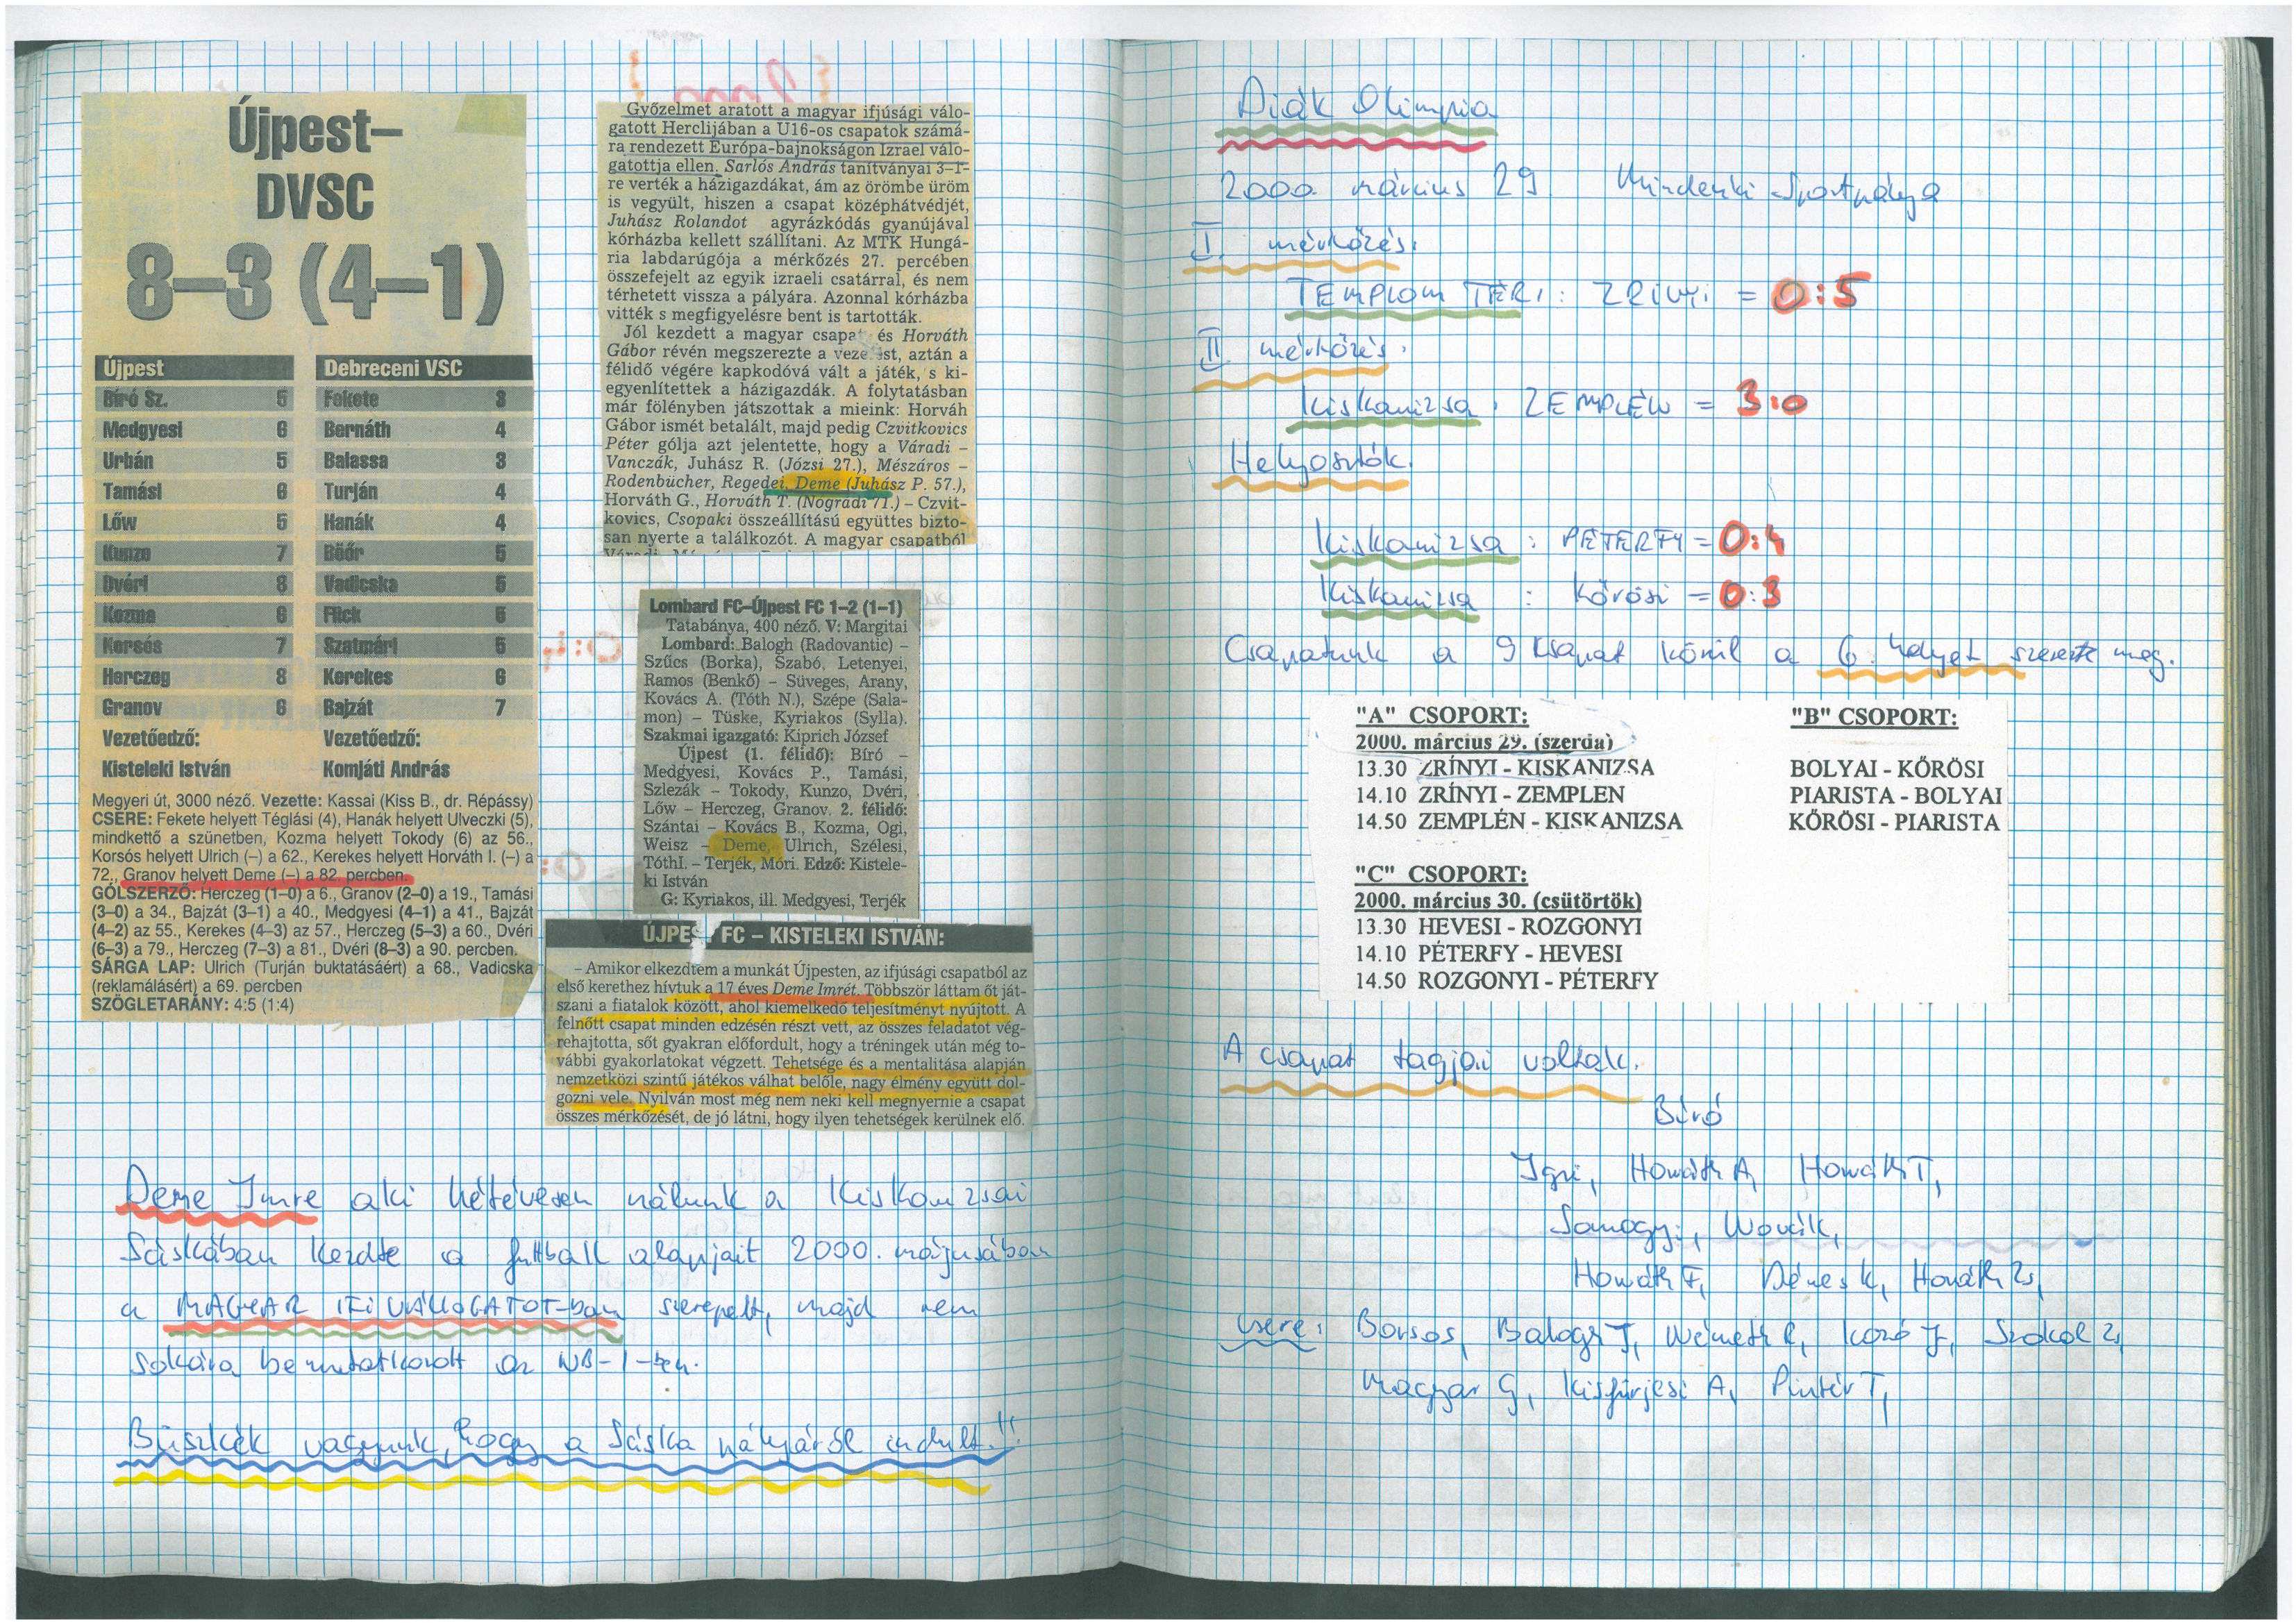 Újpest–
DVSC
8–3 (4–1)
Újpest Debreceni VSC
Bíró Sz. 5 Fekete 3
Medgyesi 6 Bernáth 4
Urbán 5 Balassa 3
Tamási 6 Turján 4
Lőw 5 Hanák 4
Kunzo 7 Böőr 5
Dvéri 8 Vadicska 5
Kozma 6 Flick 5
Korsós 7 Szatmári 5
Herczeg 8 Kerekes 6
Granov 6 Bajzát 7
Vezetőedző: Vezetőedző:
Kisteleki István Komjáti András
Megyeri út, 3000 néző. Vezette: Kassai (Kiss B., dr. Répássy)
CSERE: Fekete helyett Téglási (4), Hanák helyett Ulveczki (5),
mindkettő a szünetben, Kozma helyett Tokody (6) az 56.,
Korsós helyett Ulrich (–) a 62., Kerekes helyett Horváth I. (–) a
72., Granov helyett Deme (–) a 82. percben.
GÓLSZERZŐ: Herczeg (1–0) a 6., Granov (2–0) a 19., Tamási
(3–0) a 34., Bajzát (3–1) a 40., Medgyesi (4–1) a 41., Bajzát
(4–2) az 55., Kerekes (4–3) az 57., Herczeg (5–3) a 60., Dvéri
(6–3) a 79., Herczeg (7–3) a 81., Dvéri (8–3) a 90. percben.
SÁRGA LAP: Ulrich (Turján buktatásáért) a 68., Vadicska
(reklamálásért) a 69. percben
SZÖGLETARÁNY: 4:5 (1:4)
Győzelmet aratott a magyar ifjúsági válo-
gatott Herclijában a U16-os csapatok számá-
ra rendezett Európa-bajnokságon Izrael válo-
gatottja ellen. Sarlós András tanítványai 3–1-
re verték a házigazdákat, ám az örömbe üröm
is vegyült, hiszen a csapat középhátvédjét,
Juhász Rolandot agyrázkódás gyanújával
kórházba kellett szállítani. Az MTK Hungá-
ria labdarúgója a mérkőzés 27. percében
összefejelt az egyik izraeli csatárral, és nem
térhetett vissza a pályára. Azonnal kórházba
vitték s megfigyelésre bent is tartották.
Jól kezdett a magyar csapat és Horváth
Gábor révén megszerezte a vezetést, aztán a
félidő végére kapkodóvá vált a játék, s ki-
egyenlítettek a házigazdák. A folytatásban
már fölényben játszottak a mieink: Horváh
Gábor ismét betalált, majd pedig Czvitkovics
Péter gólja azt jelentette, hogy a Váradi –
Vanczák, Juhász R. (Józsi 27.), Mészáros –
Rodenbücher, Regedei, Deme (Juhász P. 57.),
Horváth G., Horváth T. (Nógrádi 71.) – Czvit-
kovics, Csopaki összeállítású együttes bizto-
san nyerte a találkozót. A magyar csapatból
Lombard FC–Újpest FC 1–2 (1–1)
Tatabánya, 400 néző. V: Margitai
Lombard: Balogh (Radovantic) –
Szűcs (Borka), Szabó, Letenyei,
Ramos (Benkő) – Süveges, Arany,
Kovács A. (Tóth N.), Szépe (Sala-
mon) – Tüske, Kyriakos (Sylla).
Szakmai igazgató: Kiprich József
Újpest (1. félidő): Bíró –
Medgyesi, Kovács P., Tamási,
Szlezák – Tokody, Kunzo, Dvéri,
Lőw – Herczeg, Granov. 2. félidő:
Szántai – Kovács B., Kozma, Ogi,
Weisz – Deme, Ulrich, Szélesi,
TóthI. – Terjék, Móri. Edző: Kistele-
ki István
G: Kyriakos, ill. Medgyesi, Terjék
ÚJPEST FC – KISTELEKI ISTVÁN:
– Amikor elkezdtem a munkát Újpesten, az ifjúsági csapatból az
első kerethez hívtuk a 17 éves Deme Imrét. Többször láttam őt ját-
szani a fiatalok között, ahol kiemelkedő teljesítményt nyújtott. A
felnőtt csapat minden edzésén részt vett, az összes feladatot vég-
rehajtotta, sőt gyakran előfordult, hogy a tréningek után még to-
vábbi gyakorlatokat végzett. Tehetsége és a mentalitása alapján
nemzetközi szintű játékos válhat belőle, nagy élmény együtt dol-
gozni vele. Nyilván most még nem neki kell megnyernie a csapat
összes mérkőzését, de jó látni, hogy ilyen tehetségek kerülnek elő.
Deme Imre aki hétévesen nálunk a Kiskanizsai
Sáskában kezdte a futball alapjait 2000. májusában
a MAGYAR IFI VÁLLOGATOT-ban szerepelt, majd nem
sokára bemutatkozott az NB-I-ben.
Büszkék vagyunk, hogy a Sáska pályáról indult.!!
Diák Olimpia
2000 március 29 Mindenki Sportpálya
I. mérkőzés.
TEMPLOM TÉRI : ZRÍNYI = 0:5
II mérkőzés.
Kiskanizsa : ZEMPLÉN = 3:0
Helyosztók.
Kiskanizsa : PÉTERFY = 0:4
Kiskanizsa : Kőrösi = 0:3
Csapatunk a 9 csapat közül a 6. helyet szerezte meg.
"A" CSOPORT: "B" CSOPORT:
2000. március 29. (szerda)
13.30 ZRÍNYI - KISKANIZSA BOLYAI - KŐRÖSI
14.10 ZRÍNYI - ZEMPLEN PIARISTA - BOLYAI
14.50 ZEMPLÉN - KISKANIZSA KŐRÖSI - PIARISTA
"C" CSOPORT:
2000. március 30. (csütörtök)
13.30 HEVESI - ROZGONYI
14.10 PÉTERFY - HEVESI
14.50 ROZGONYI - PÉTERFY
A csapat tagjai voltak.
Bíró
Igri, Horváth A, Horváth T,
Somogyi, Novák,
Horváth F, Dénes K, Horváth Zs,
csere: Borsos, Balogh J, Németh R, Kozó J, Szokol Z,
Magyar G, Kisfürjesi A, Pintér T,